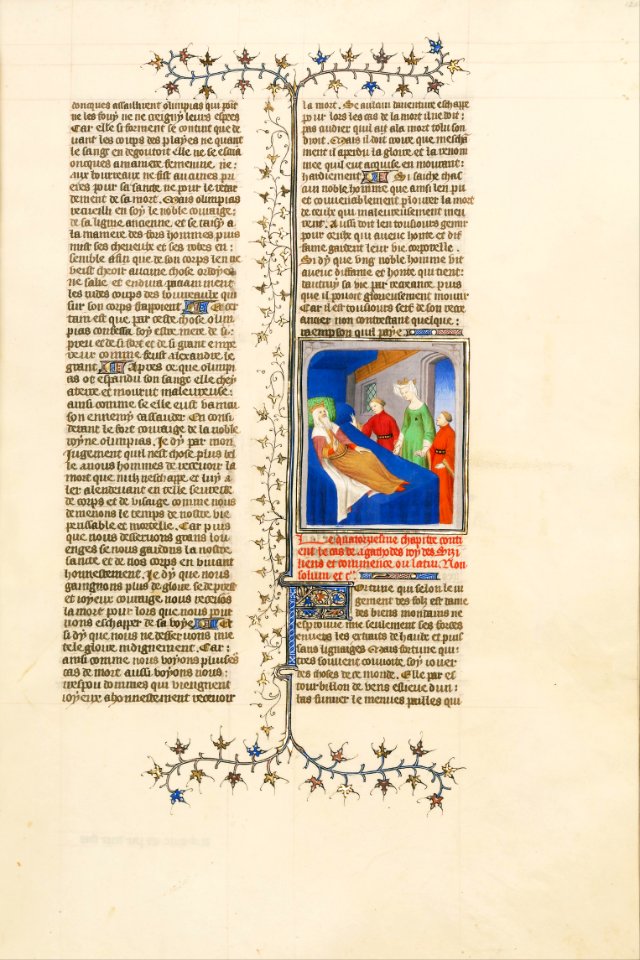 donques assaillirent olimpias qui point
ne les fouy ne ne creigny leurs espees
Car elle si forment se contint que de
uant les coups des playes ne quant
le sang en degoutoit elle ne se escria
oncques a maniere femenine, ne:
aux bourreaux ne fist aucunes pri
eres pour sa sante ne pour le retar
dement de sa mort. Mais olimpias
recueilli en soy le noble couraige:
de sa lignie ancienne, et se taisy a
la maniere des fors hommes puis
mist ses cheueulx et ses robes en:
semble afin que de son corps len ne
veist cheoir aucune chose orde
ne sale et endura paciamment
les rudes coups des bourreaulx qui
sur son corps frapoient Et cer
tain est que par ceste chose olim
pias confessa soy estre mere de si:
preu et de si fort et de si grant empe
reur comme feust alexandre le
grant Apres ce que olimpi
as ot espandu son sang elle chey
aterre et mourut maleureuse:
ainsi comme se elle eust vaincu
son ennemy cassander. En consi
derant le fort couraige de la noble
royne olimpias. Je dy par mon
iugement quil nest chose plus bel
le a nous hommes de receuoir la
mort que nulz neschappe et luy a
ler alendeuant en telle seurete
de corps et de visaige comme nous
demenons le temps de nostre vie
perissable et mortelle. Car puis
que nous desseruons grans lou
enges se nous gardons la nostre
sante et de nos corps en viuant
honnestement. Je dy que nous
gaignons plus de gloire se de prest
et ioyeux couraige, nous receuons
la mort pour lors que nous pour
rions eschapper de sa voye Et
si dy que nous ne desseruons mie
telle gloire indignement. Car:
ainsi comme nous voyons pluises
cas de mort aussi voyons nous:
trespou dommes qui viengnent
ioyeux a honnestement receuoir
la mort. Se aucun dauenture eschappe
pour lors les cas de la mort il ne doit:
pas cuidier quil ait a la mort tolu son
droit. Mais il doit croire que mescham
ment il a perdu la gloire et la renom
mee quil eust acquise en mourant:
hardiement Si sache chas
cun noble homme que ainsi len puet
et couuenablement plourer la mort
de ceulx qui maleureusement meu
rent. Aussi doit len tousiours gemir
pour ceulx qui auecques honte et dif
fame gardent leur vie corporelle.
Si dy que vng noble homme vit
auecques diffame et honte qui tient:
aucun sa vie par recreance puis
que il pouoit glorieusement mourir
Car il est tousiours serf de son recre
ancier non contrestant quelque:
raempson quil paye
Le quatorziesme chapitre conti
ent le cas de agathodes roy des Sizi
liens et commence ou latin. Non
solum et cetera
Fortune qui selon le iu
gement des folz est dame
des biens mondains ne
esprouue mie seulement ses forses
enuers les extrais de haulz et puis
sans lignaiges Mais fortune qui
tres souuent conuoite soy iouer
des choses de ce monde. Elle par es
tourbillon de vens eslieue dun:
bas fumier le menues pailles qui